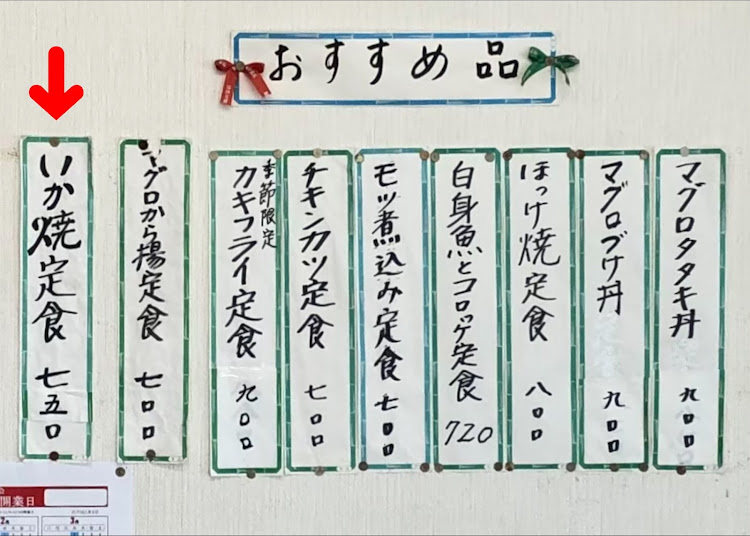 おすすめ品
マグロタタキ丼 九〇〇
マグロづけ丼 九〇〇
ほっけ焼定食 八〇〇
白身魚とコロッケ定食 720
モツ煮込み定食 七〇〇
チキンカツ定食 七〇〇
季節限定
カキフライ定食 九〇〇
マグロから揚定食 七〇〇
いか焼定食 七五〇
開業日
2月 3月